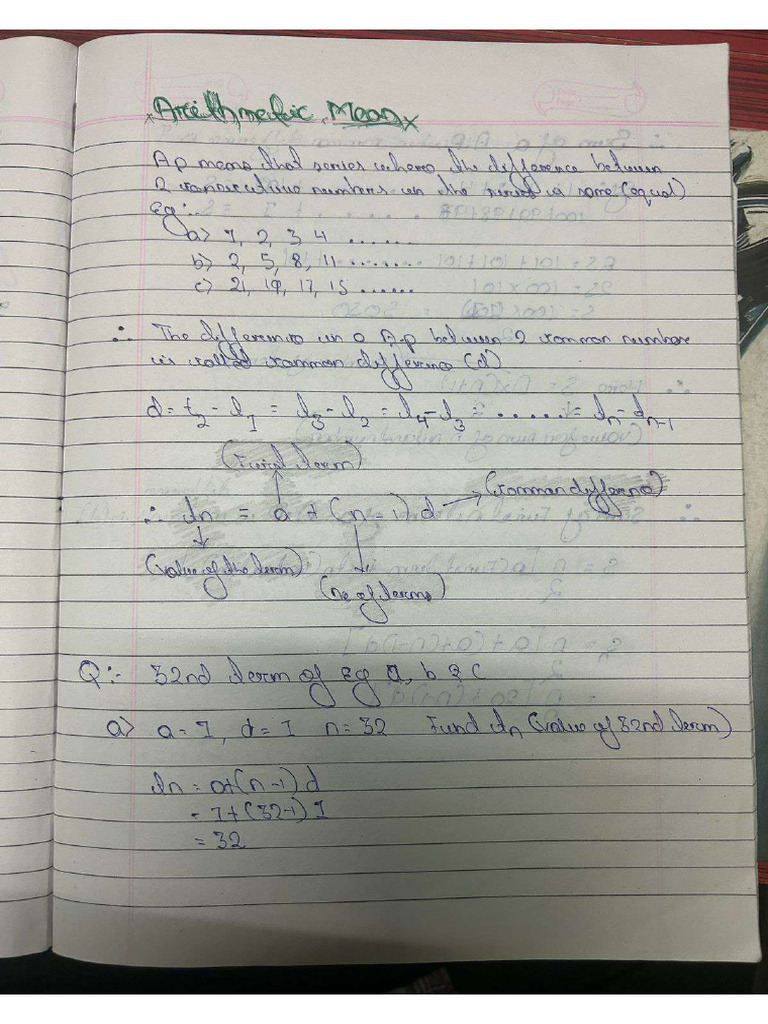 Arithmetic Mean
A.p means that series where the difference between
2 consecutive numbers in the series is same (equal)
Eg:-
a) 1, 2, 3, 4 ......
b) 2, 5, 8, 11 ........
c) 21, 19, 17, 15 ......
∴ The difference in a A.p between 2 common numbers
is called common difference (d)
d = t2 - t1 = t3 - t2 = t4 - t3 = ...... = tn - tn-1
(First term)
(common difference)
∴ tn = a + (n - 1) d
(value of the term)
(no of terms)
Q:- 32nd term of eg a, b & c
a) a = 1, d = 1 n = 32 Find tn (value of 32nd term)
tn = a+(n-1) d
= 1+(32-1) 1
= 32